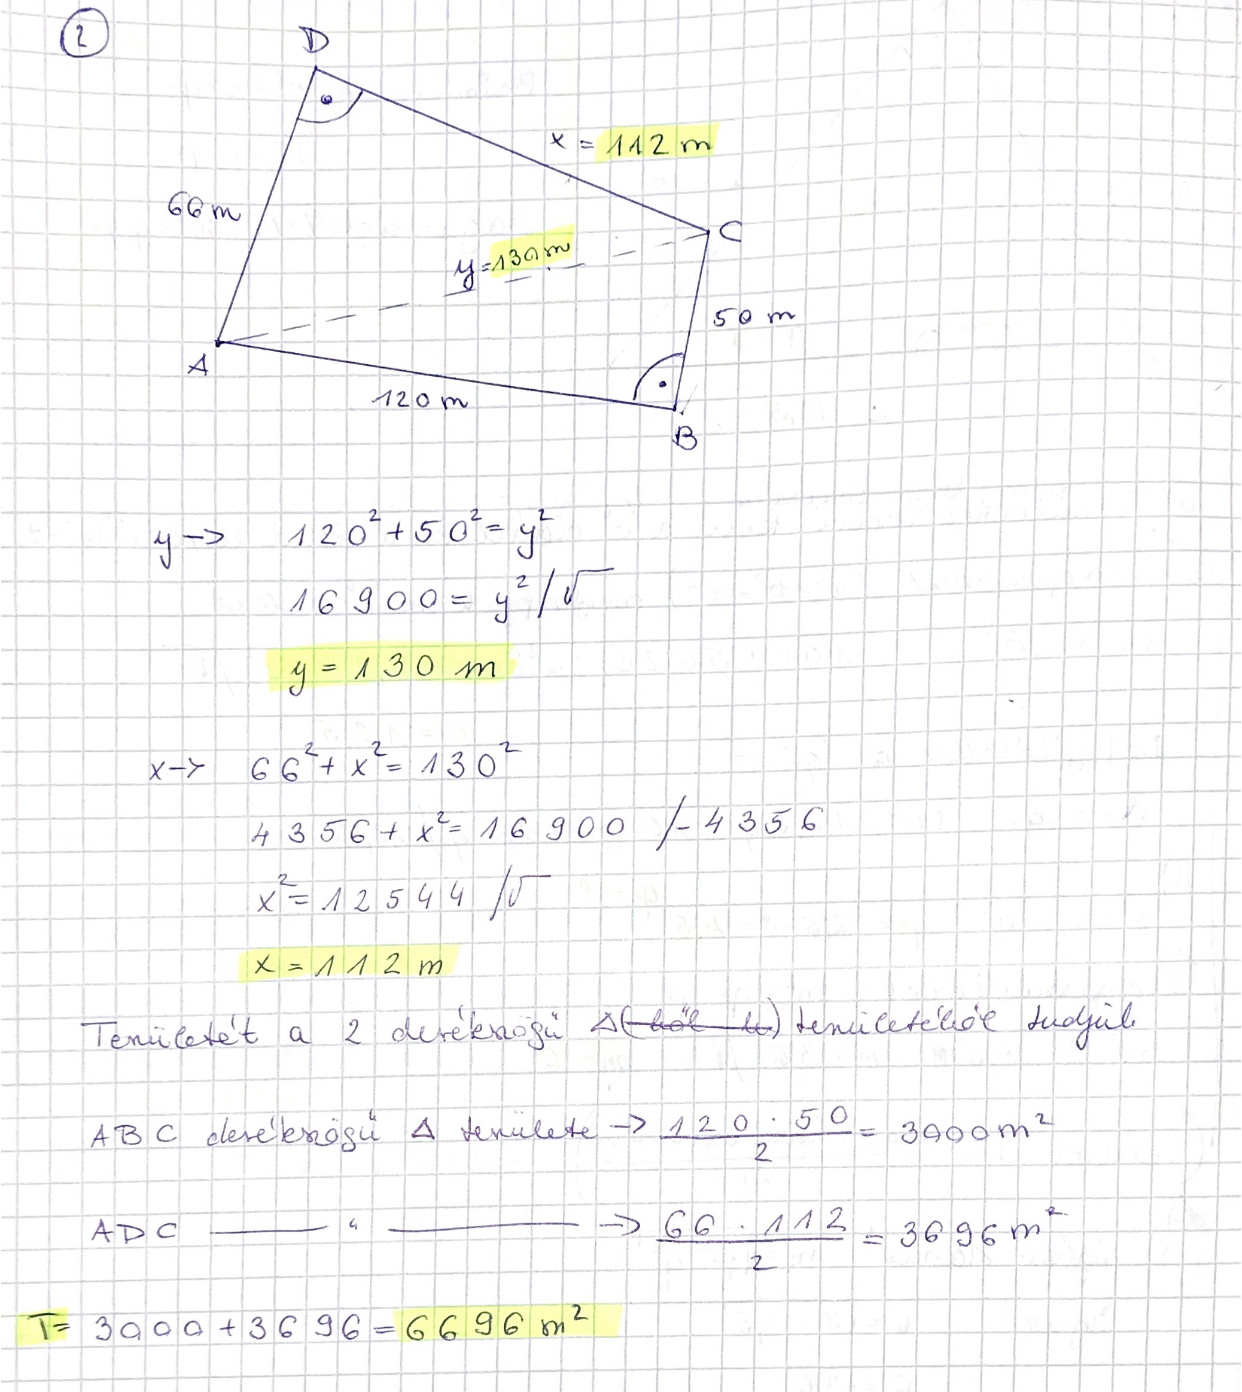 2
D
x = 112 m
66 m
C
y=130m
50 m
A
120 m
B
y -> 120² + 50² = y²
16900 = y² /√
y = 130 m
x -> 66² + x² = 130²
4356 + x² = 16900 /- 4356
x² = 12544 /√
x = 112 m
Területét a 2 derékszögű Δ() területéből tudjuk
ABC derékszögű Δ területe -> 120 · 50 / 2 = 3000 m²
ADC —— " —— -> 66 · 112 / 2 = 3696 m²
T = 3000 + 3696 = 6696 m²